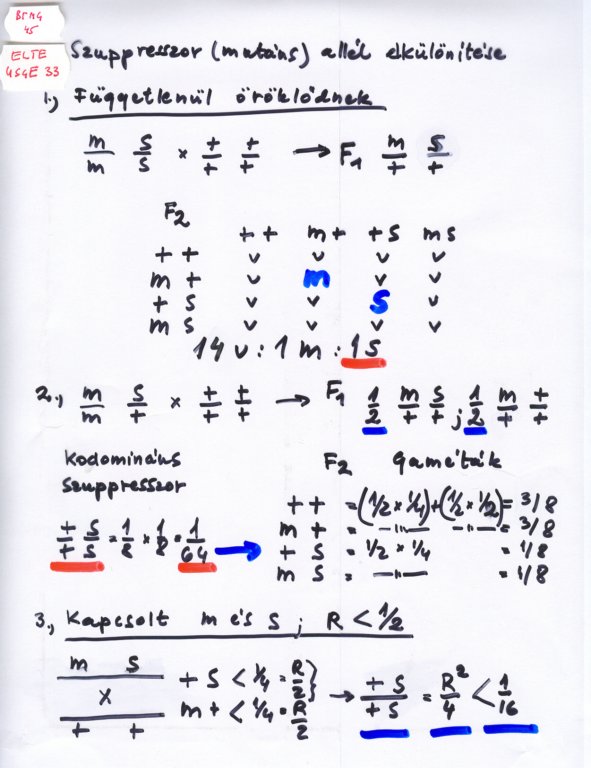 BSMG
45
ELTE
454E 33
Szuppresszor (mutáns) allél elkülönítése
1., Függetlenül öröklődnek
m/m S/S × +/+ +/+ → F1 m/+ S/+
F2
++ m+ +S mS
++ v v v v
m+ v m v v
+S v v S v
mS v v v v
14v : 1m : 1S
2., m/m S/+ × +/+ +/+ → F1 1/2 m/+ S/+ ; 1/2 m/+ +/+
Kodomináns
szuppresszor
F2 Gaméták
++ = (1/2 × 1/4) + (1/2 × 1/2) = 3/8
m+ = —"— —"— = 3/8
+S = 1/2 × 1/4 = 1/8
mS = —"— = 1/8
+/+ S/S = 1/8 × 1/8 = 1/64 →
3., Kapcsolt m és S ; R < 1/2
m S
×
+ +
+S < 1/4 = R/2 }
m+ < 1/4 = R/2 } → +S/+S = R²/4 < 1/16